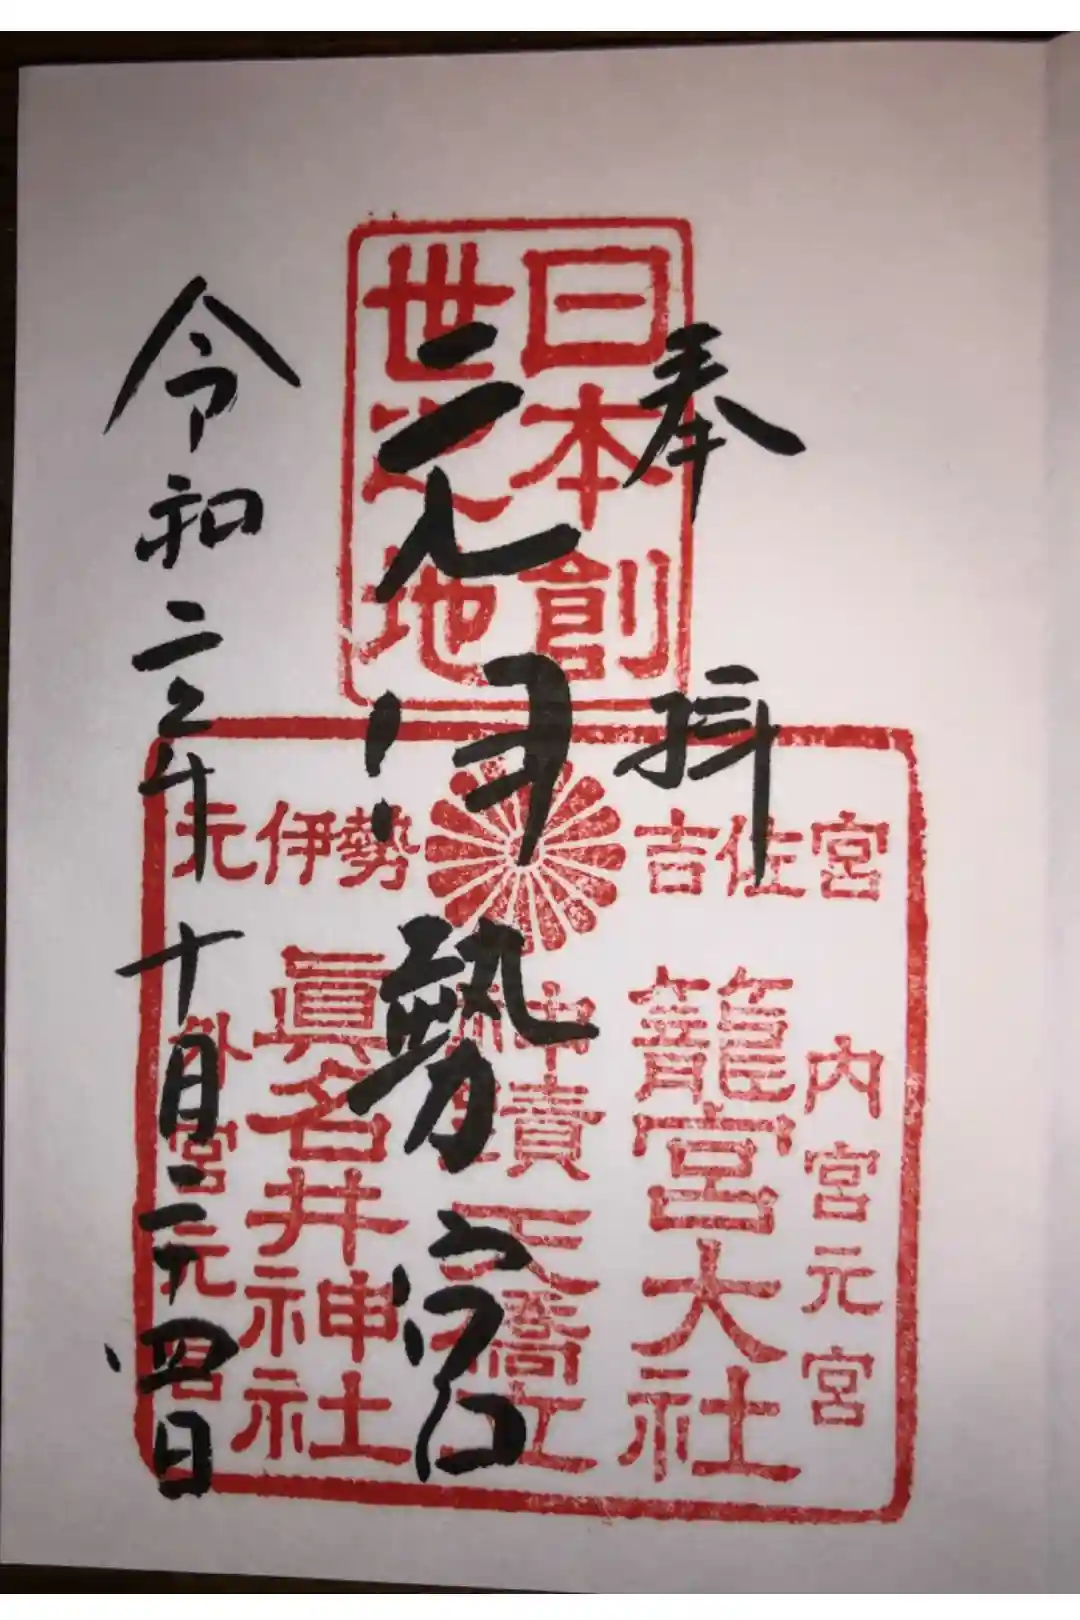 奉拝
元伊勢宮
令和二年十月二十四日
日本創
世之地
吉佐宮
元伊勢
内宮元宮
籠宮大社
神蹟天橋立
眞名井神社
外宮元宮